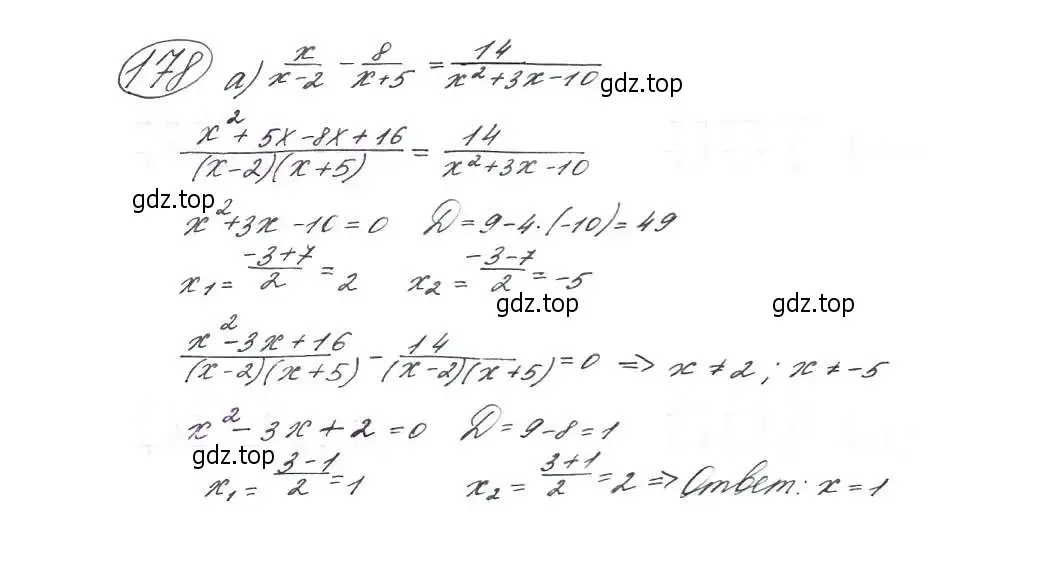 178 а) x/(x-2) - 8/(x+5) = 14/(x²+3x-10) gdz.top
(x²+5x-8x+16)/((x-2)(x+5)) = 14/(x²+3x-10)
gdz.top
x²+3x-10=0 D=9-4·(-10)=49
x₁= (-3+7)/2 = 2 x₂ = (-3-7)/2 = -5
gdz.top gdz.top
(x²-3x+16)/((x-2)(x+5)) - 14/((x-2)(x+5)) = 0 => x≠2; x≠-5
x²-3x+2=0 D=9-8=1
gdz.top
x₁= (3-1)/2 = 1 x₂= (3+1)/2 = 2 => Ответ: x=1